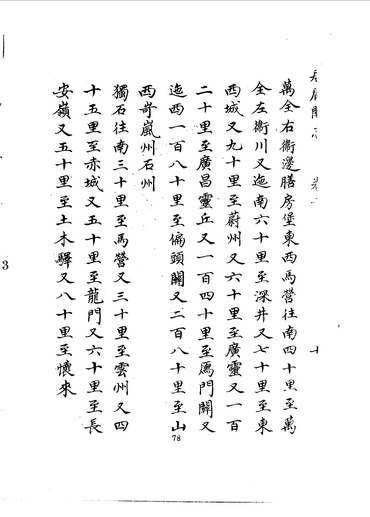 居庸關
十
萬全右衛邊膳房堡東西馬營往南四十里至萬
全左衛川又迤南六十里至深井又七十里至東
西城又九十里至蔚州又六十里至廣靈又一百
二十里至廣昌靈丘又一百四十里至鴈門關又
迤西一百八十里至偏頭關又二百八十里至山
西岢嵐州石州
獨石往南三十里至馬營又三十里至雲州又四
十五里至赤城又五十里至龍門又六十里至長
安嶺又五十里至土木驛又八十里至懷來
78
3